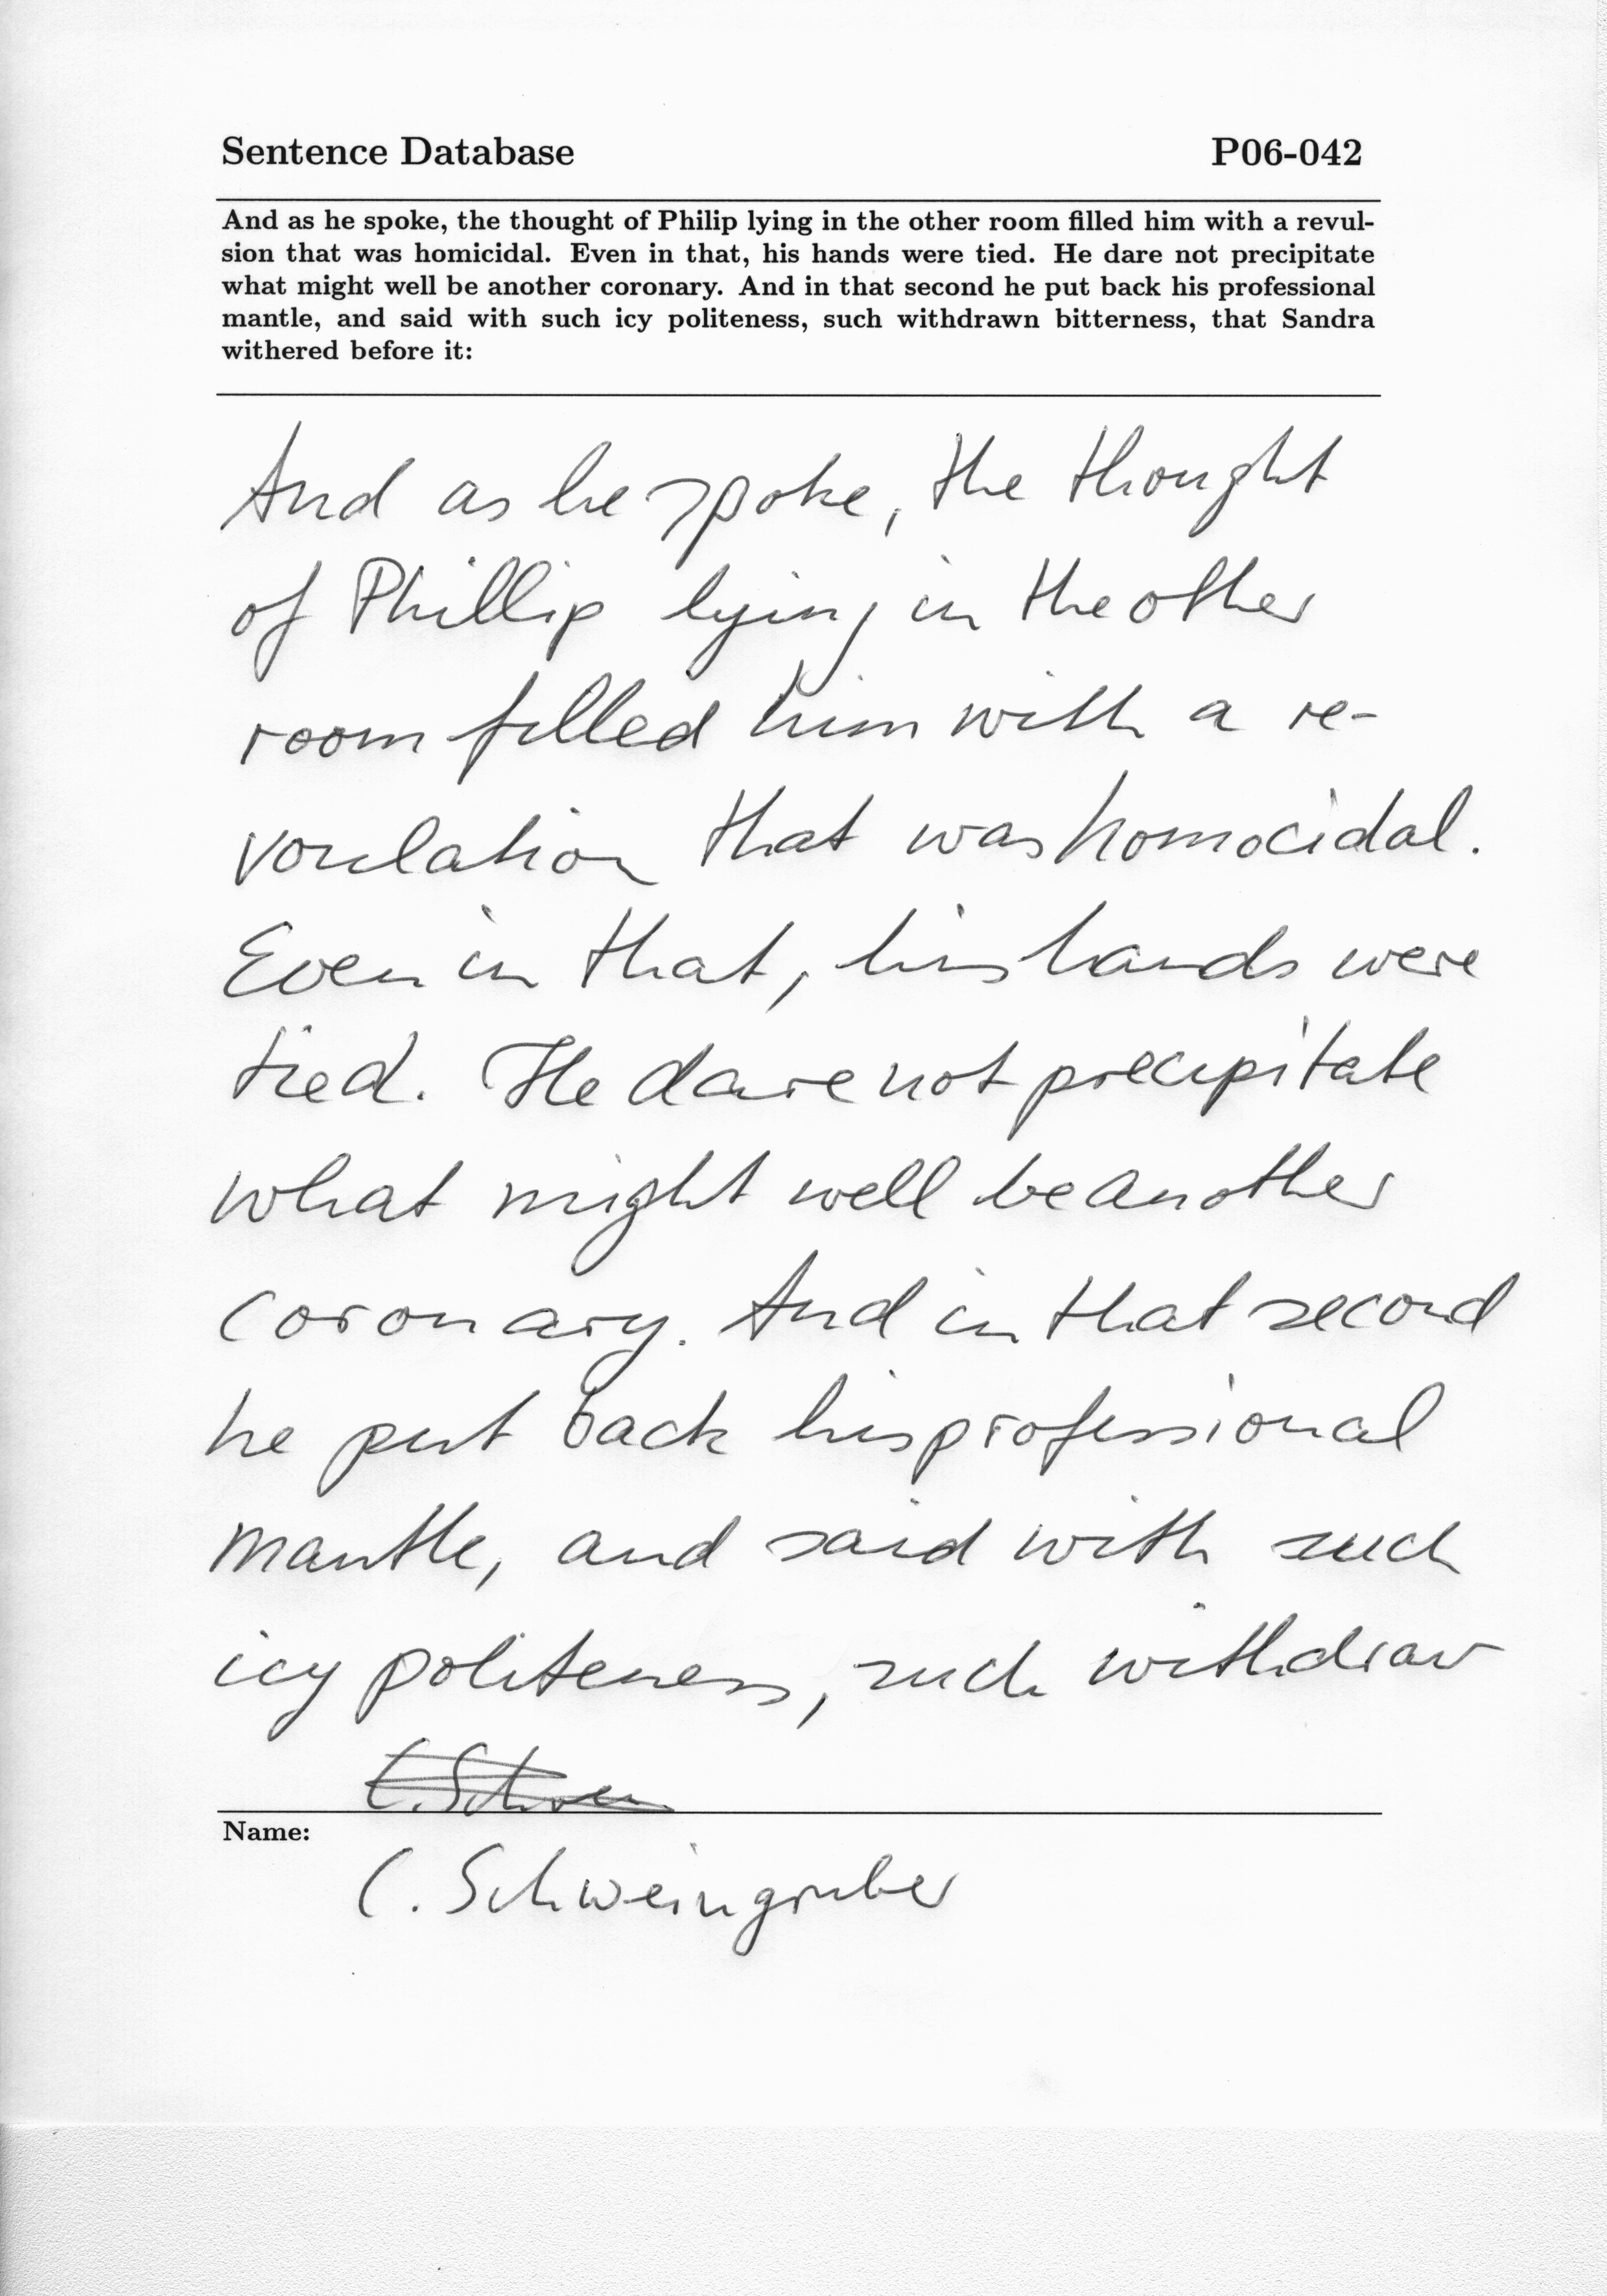 Sentence Database P06-042
And as he spoke, the thought of Philip lying in the other room filled him with a revul-
sion that was homicidal. Even in that, his hands were tied. He dare not precipitate
what might well be another coronary. And in that second he put back his professional
mantle, and said with such icy politeness, such withdrawn bitterness, that Sandra
withered before it:
And as he spoke, the thought
of Phillip lying in the other
room filled him with a re-
voulation that was homocidal.
Even in that, his hands were
tied. He dare not precipitate
what might well be another
coronary. And in that second
he put back his professional
mantle, and said with such
icy politeness, such withdraw
Name:
C. Schweingruber